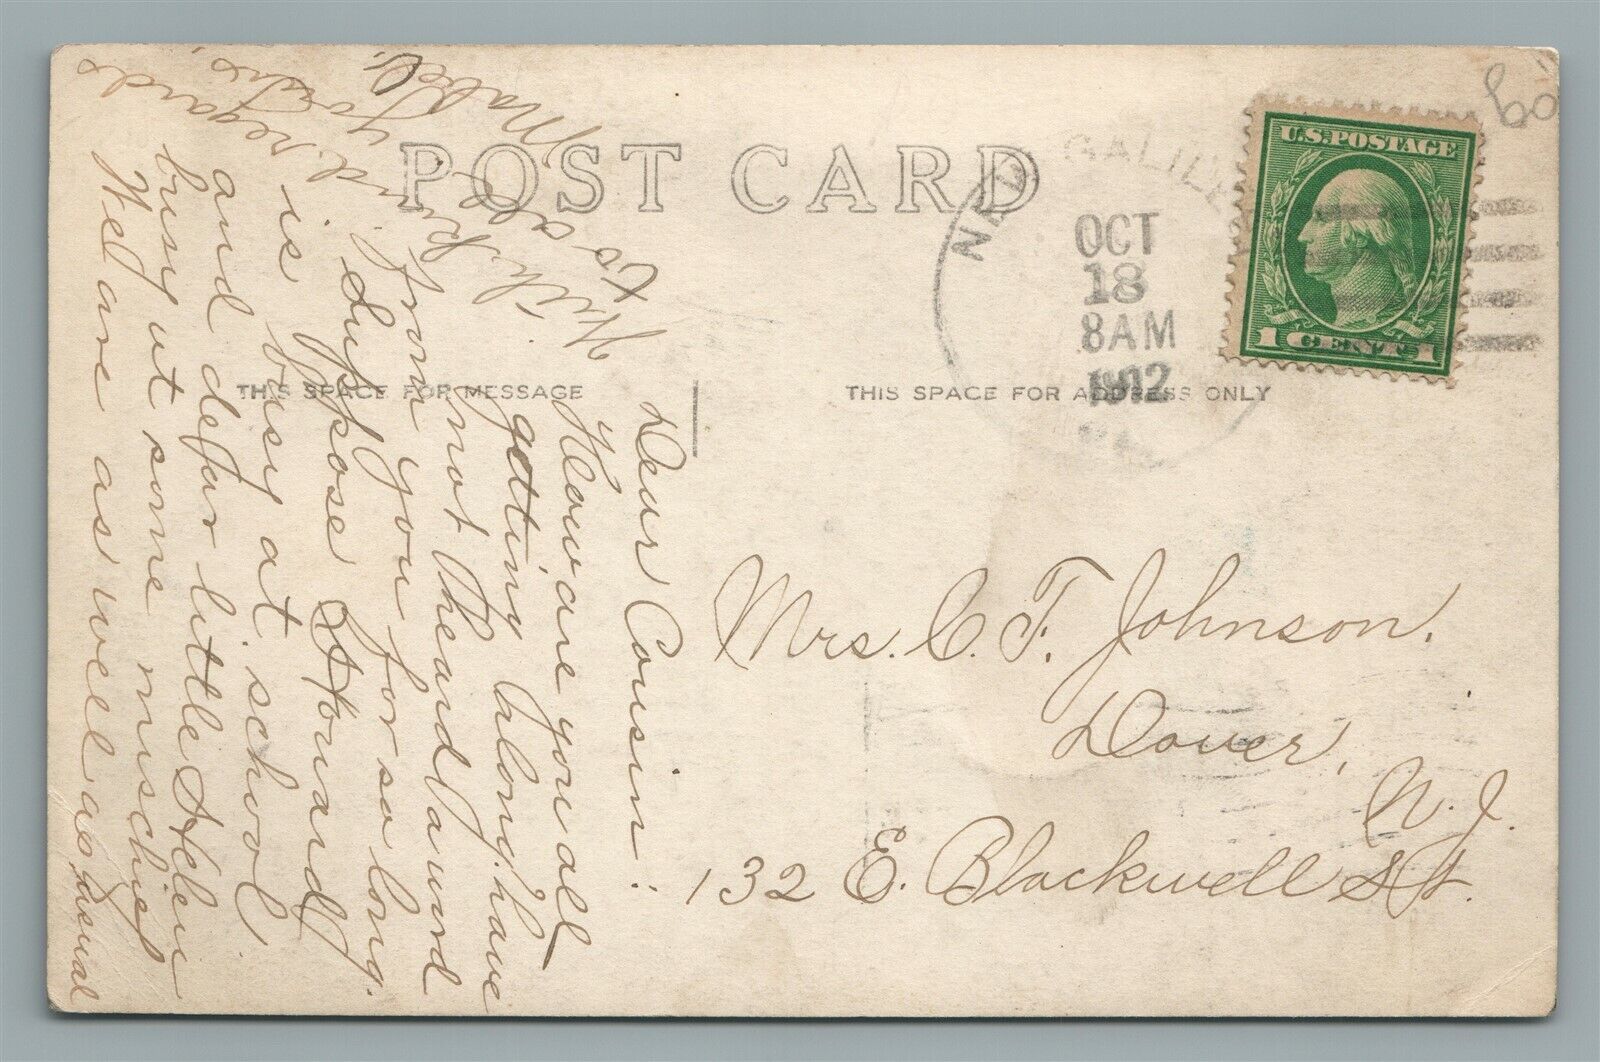 POST CARD
THIS SPACE FOR MESSAGE
THIS SPACE FOR ADDRESS ONLY
NEW GALILEE
OCT
18
8AM
1912
U.S.POSTAGE
1 CENT 1
Mrs. C. F. Johnson.
Dover,
N. J.
132 E. Blackwell St.
Dear Cousin:
How are you all
getting along. have
not heard aurd
from you for so long.
Suppose Howard
is busy at school.
and defar little Helen
busy at some mischief
Well are as well as usual
With
regards
to all
Mabel.